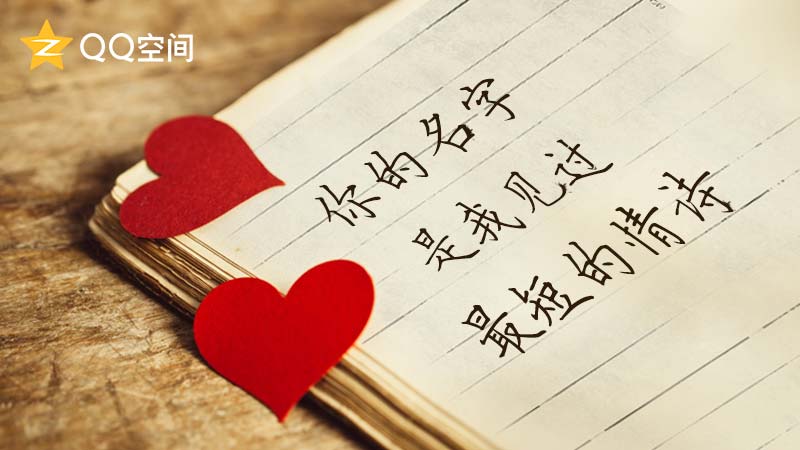 QQ空间
你的名字
是我见过
最短的情诗